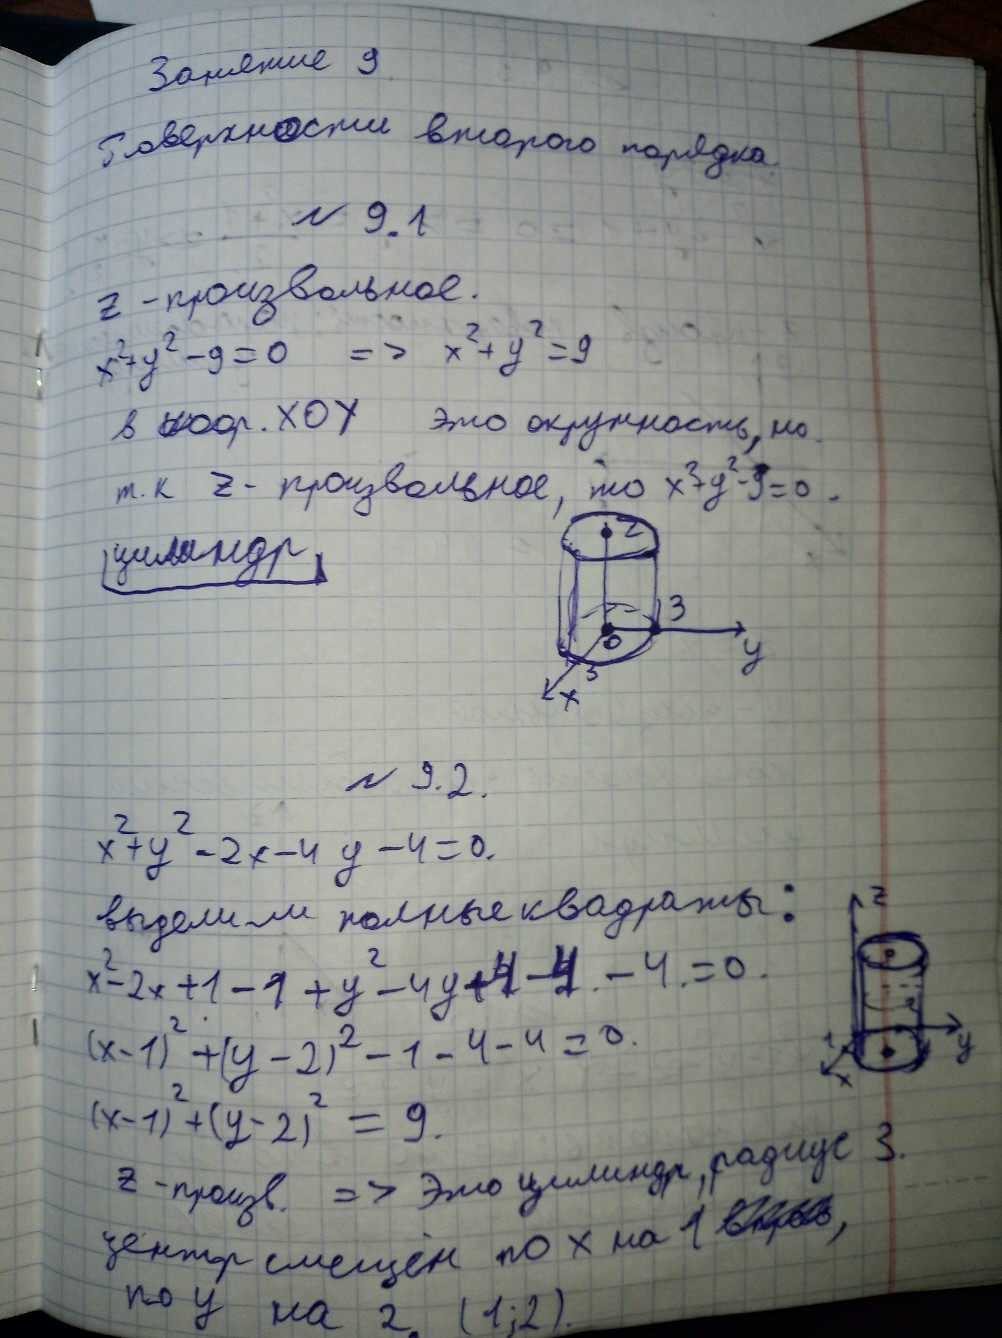 Занятие 9
Поверхности второго порядка
№ 9.1
z - произвольное.
x²+y²-9=0 => x²+y²=9
в коор. XOY это окружность, но
т.к z - произвольное, то x²+y²-9=0.
цилиндр
z
3
0
y
3
x
№ 9.2.
x²+y²-2x-4y-4=0.
выделили полные квадраты:
z
x²-2x+1-1+y²-4y+4-4-4=0.
(x-1)²+(y-2)²-1-4-4=0.
2
1
y
x
(x-1)²+(y-2)²=9.
z - произв. => Это цилиндр, радиус 3.
центр смещён по x на 1,
по y на 2. (1;2).